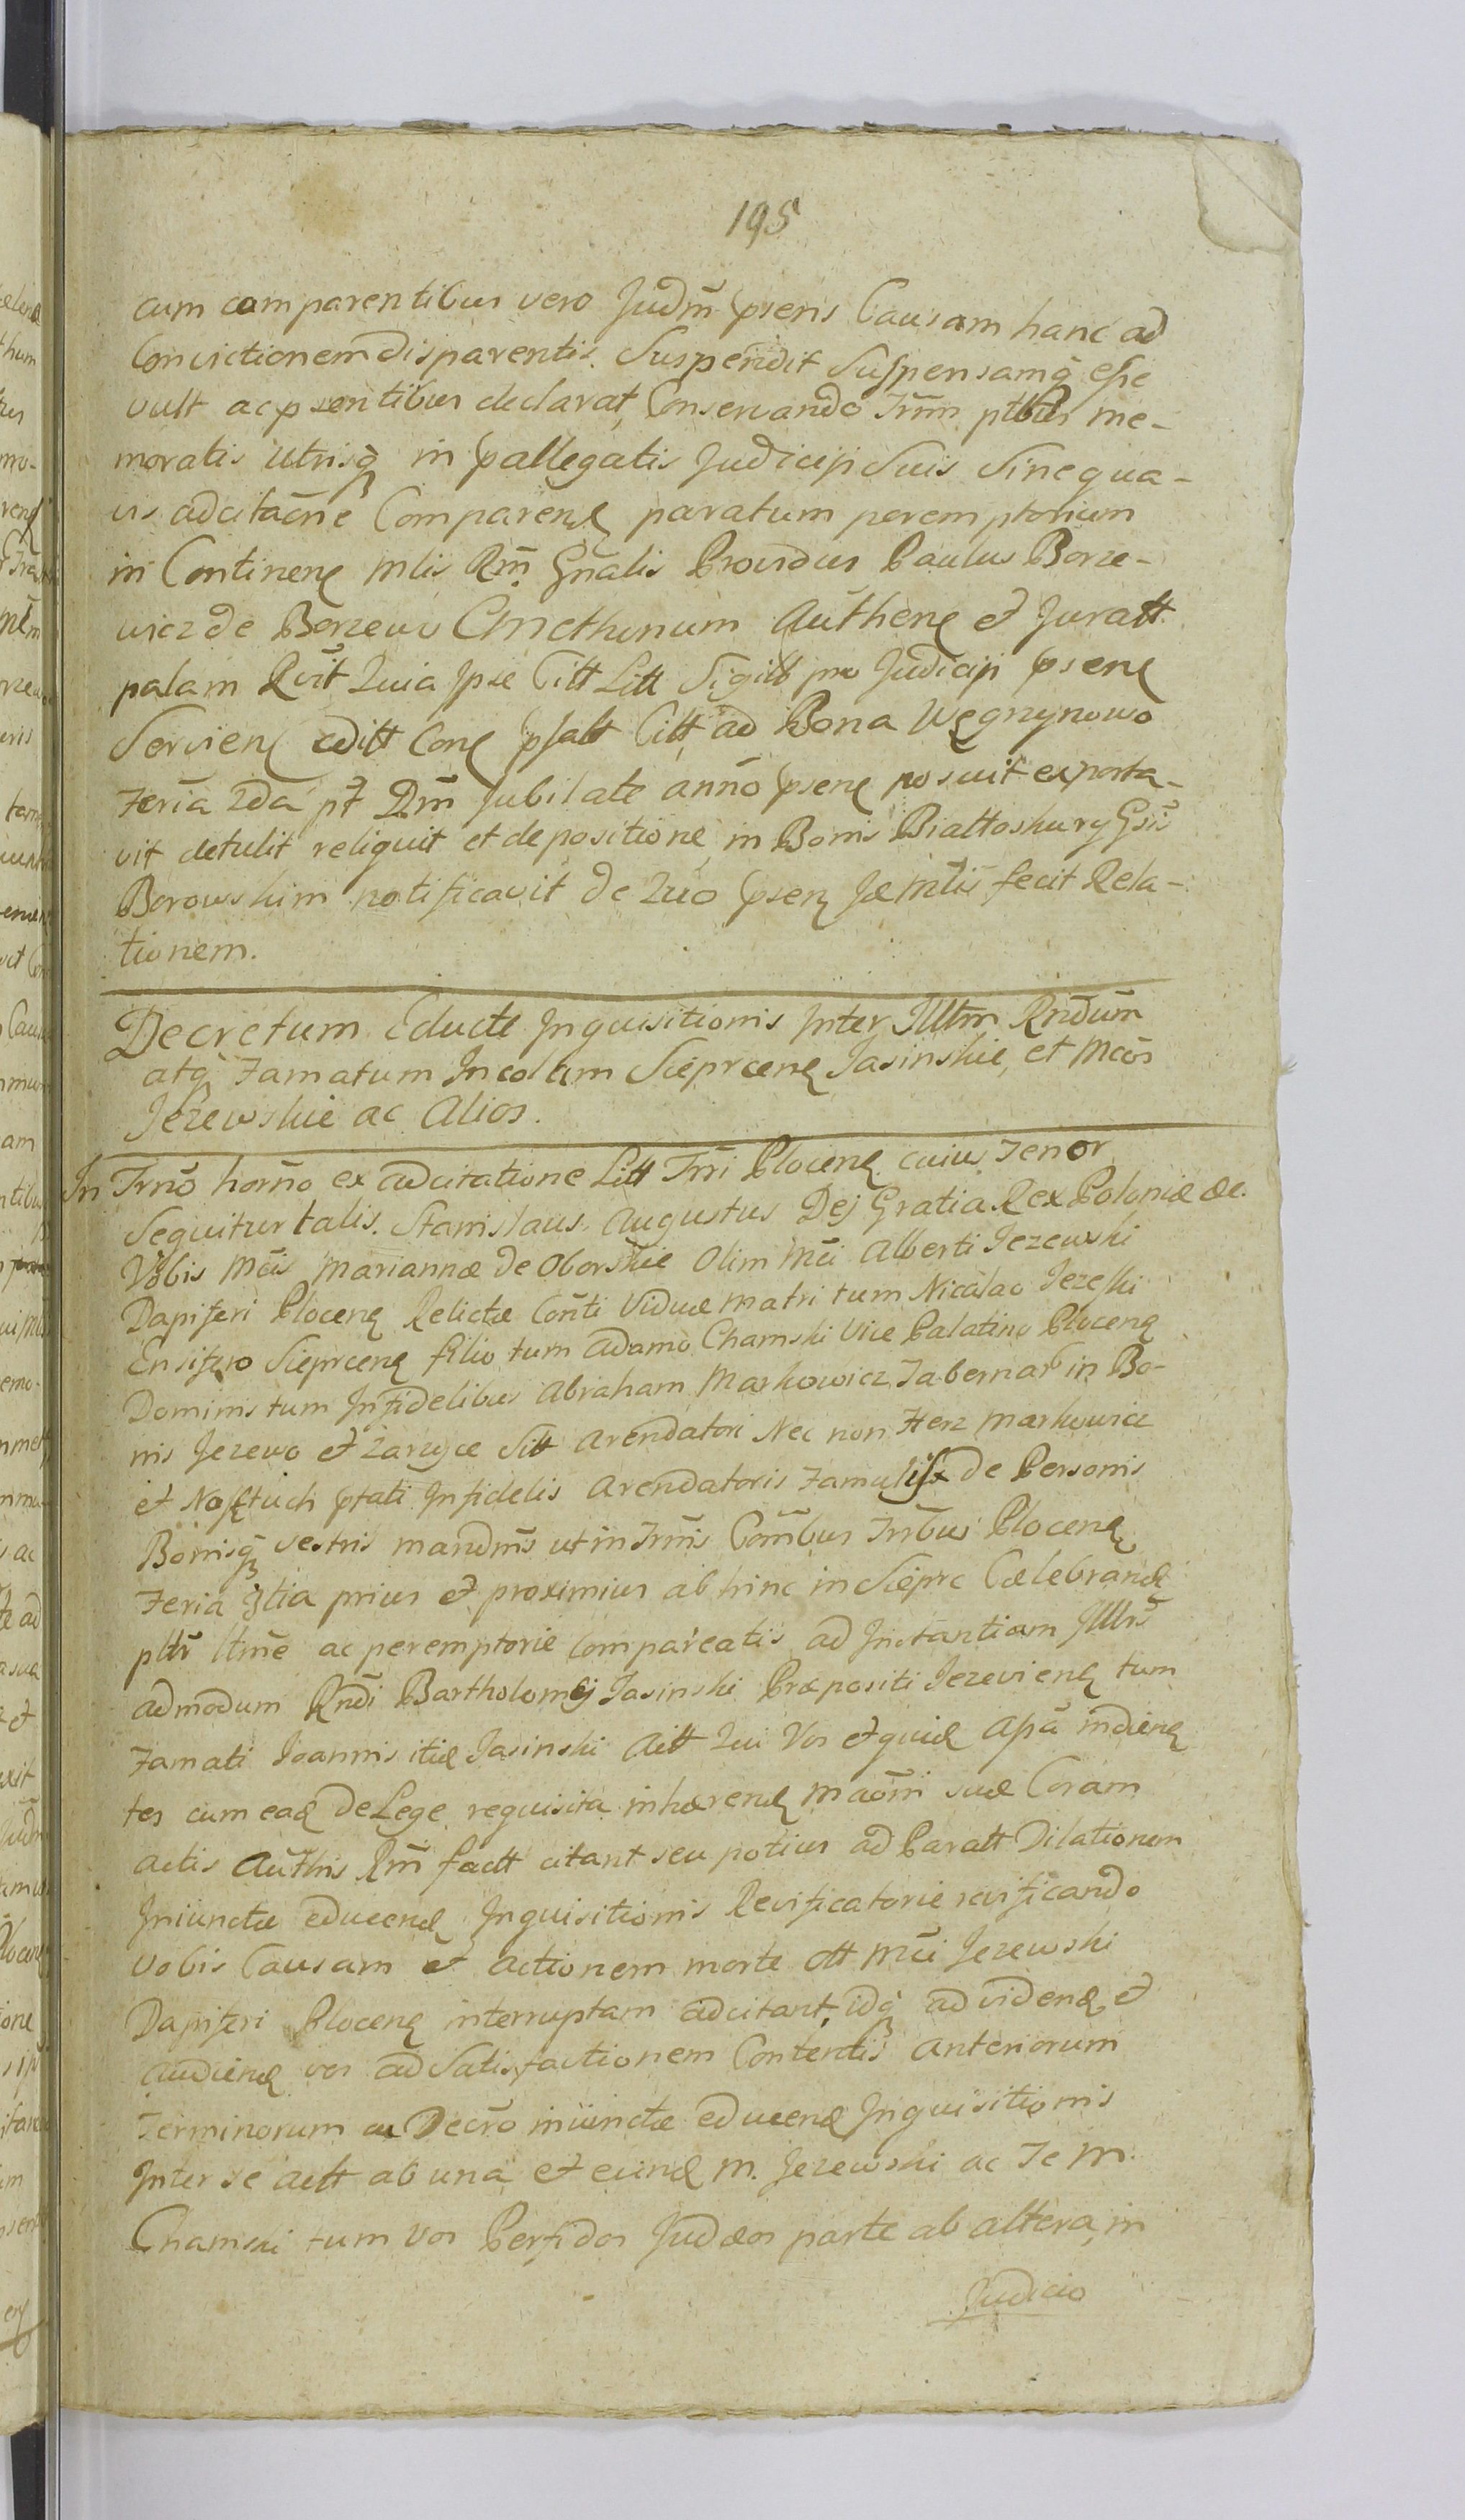 195
cum comparentibus vero Judm̄ psens Causam hanc ad
Convictionem disparentis. Suspendit Suspensamq̄ esse
vult ac psentibus declarat, Conservando Trm̄ ptbus me-
moratis utrisq̄ in pallegatis Judicij Suis Sine qua-
vis adcitac̄ne Comparen̨ paratum peremptorium
in Continen̨ mlis Rm̄ Gnalis Providus Paulus Borze-
wicz de Borzewo Cmethonum Authen̨ et Juratt
palam Rvit Quia Ipse Citt Litt Sigill pro Judicij psen̨
Servien̨ editt Con̨ psatt Citt ad Bona Węgrzynowo
Feria 2da pt Dm̄ Jubilate anno psen̨ posuit exporta-
vit detulit reliquit et depositione in Bonis Białtoskury Gsis
Borowskim notificavit de Quo psen̨ se mlis fecit Rela-
tionem.
Decretum Educte Inquisitionis Inter Illtm̄ Rndum
atq̄ Famatum Incolam Sieprcen̨ Jasinskie, et Mcos
Jezewskie ac Alios.
In Trn̄o horn̄o ex adcitatione Litt Trri Plocen̨ cuius Tenor
Sequitur talis. Stanislaus Augustus Dej Gratia Rex Poloniæ &c.
Vobis Mcis Mariannæ de Oborskie Olim Mci Alberti Jezewski
Dapiferi Plocen̨ Relictæ Conti Viduæ matri tum Nicolao Jezeski
Ensifero Sieprcen̨ filio tum Adamo Chamski Vice Palatino Plocen̨
Dominis tum Infidelibus Abraham Markowicz Tabernar in Bo-
nis Jezewo et Zarzyce Sitt Arendatori Nec non Herz Markowicz
et Noftuch ptati Infidelis Arendatoris Famulis de Personis
Bonisq̄ vestris mandm̄s ut in Trm̄s Com̄bus Trrbus Plocen̨
Feria 3tia prius et proximius ab hinc in Sieprc Celebrand
pltr ltm̄e ac peremptorie Compareatis ad Instantiam Illtris
admodum Rndi Bartholomej Jasinski Præpositi Jezevien̨ tum
Famati Joannis itid Jasinski Actt Qui Vos et quid Apa indien̨
tes cum ead de Lege requisita inhæren̨ maom̄i suæ Coram
actis Authis Rm̄ factt citant seu potius ad Paratt Dilationem
Iniunctæ educend Inquisitionis Revificatorie revificando
vobis Causam et actionem morte ott Mci Jezewski
Dapiferi Plocen̨ interruptam adcitant, idq̄ ad vidend et
audiend vos ad Satisfactionem Contentis anteriorum
Terminorum ac Decr̄o iniunctæ educend Inquisitionis
Inter se actt ab una et eund M. Jezewski ac Te M.
Chamski tum vos Perfidos Judæos parte ab altera, in
Judicio